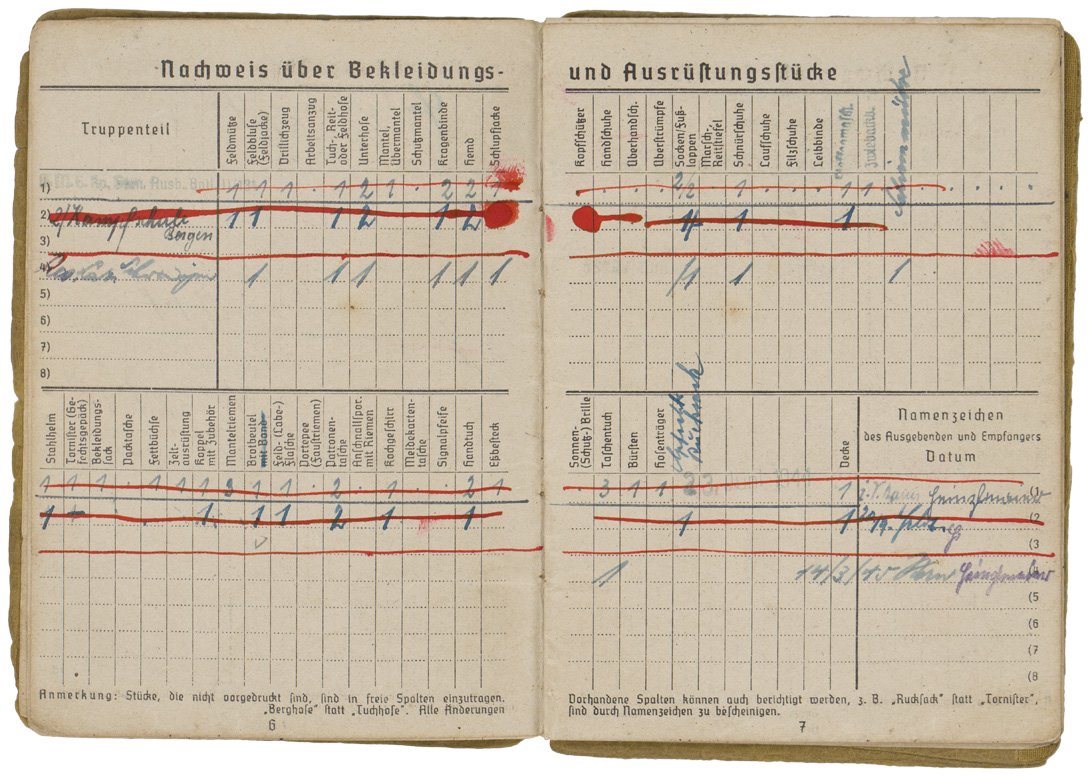 Nachweis über Bekleidungs-
Truppenteil
Feldmütze
Feldbluse (Feldjacke)
Drillichzeug
Arbeitsanzug
Tuch- Reit- oder Feldhose
Unterhose
Mantel, Übermantel
Schutzmantel
Kragenbinde
Hemd
Schlupfjacke
1) 1 1 1 . 1 2 1 . 2 2 1
2) Kampfschule 1 1 1 2 1 2
Bergen
3)
4) 1 1 1 1 1 1
5)
6)
7)
8)
Stahlhelm
Tornister (Gefechtsgepäck)
Bekleidungs-sack
Packtasche
Fettbüchse
Zelt-ausrüstung
Koppel mit Zubehör
Mantelriemen
Brotbeutel mit Band
Feld- (Labe-) Flasche
Portepee (Faustriemen)
Patronen-tasche
Anschnallspor. mit Riemen
Kochgeschirr
Meldekarten-tasche
Signalpfeife
Handtuch
Eßbesteck
1 1 1 . 1 1 1 3 1 1 . 2 . 1 . . 2 1
1 1 1 1 2 1 1
Anmerkung: Stücke, die nicht vorgedruckt sind, sind in freie Spalten einzutragen.
„Berghose" statt „Tuchhose". Alle Änderungen
6
und Ausrüstungsstücke
Kopfschützer
Handschuhe
Überhandsch.
Überstrümpfe
Socken/Fuß-lappen
Marsch-, Reitstiefel
Schnürschuhe
Laufschuhe
Filzschuhe
Leibbinde
2/2 1 1 1
4 1 1
1 1 1
Sonnen-(Schutz-) Brille
Taschentuch
Bürsten
Hosenträger
Decke
Namenzeichen
des Ausgebenden und Empfangers
Datum
3 1 1 1 (1
1 1 (2
(3
1 14/3/45
(5
(6
(7
(8
Vorhandene Spalten können auch berichtigt werden, z. B. „Rucksack" statt „Tornister",
sind durch Namenzeichen zu bescheinigen.
7